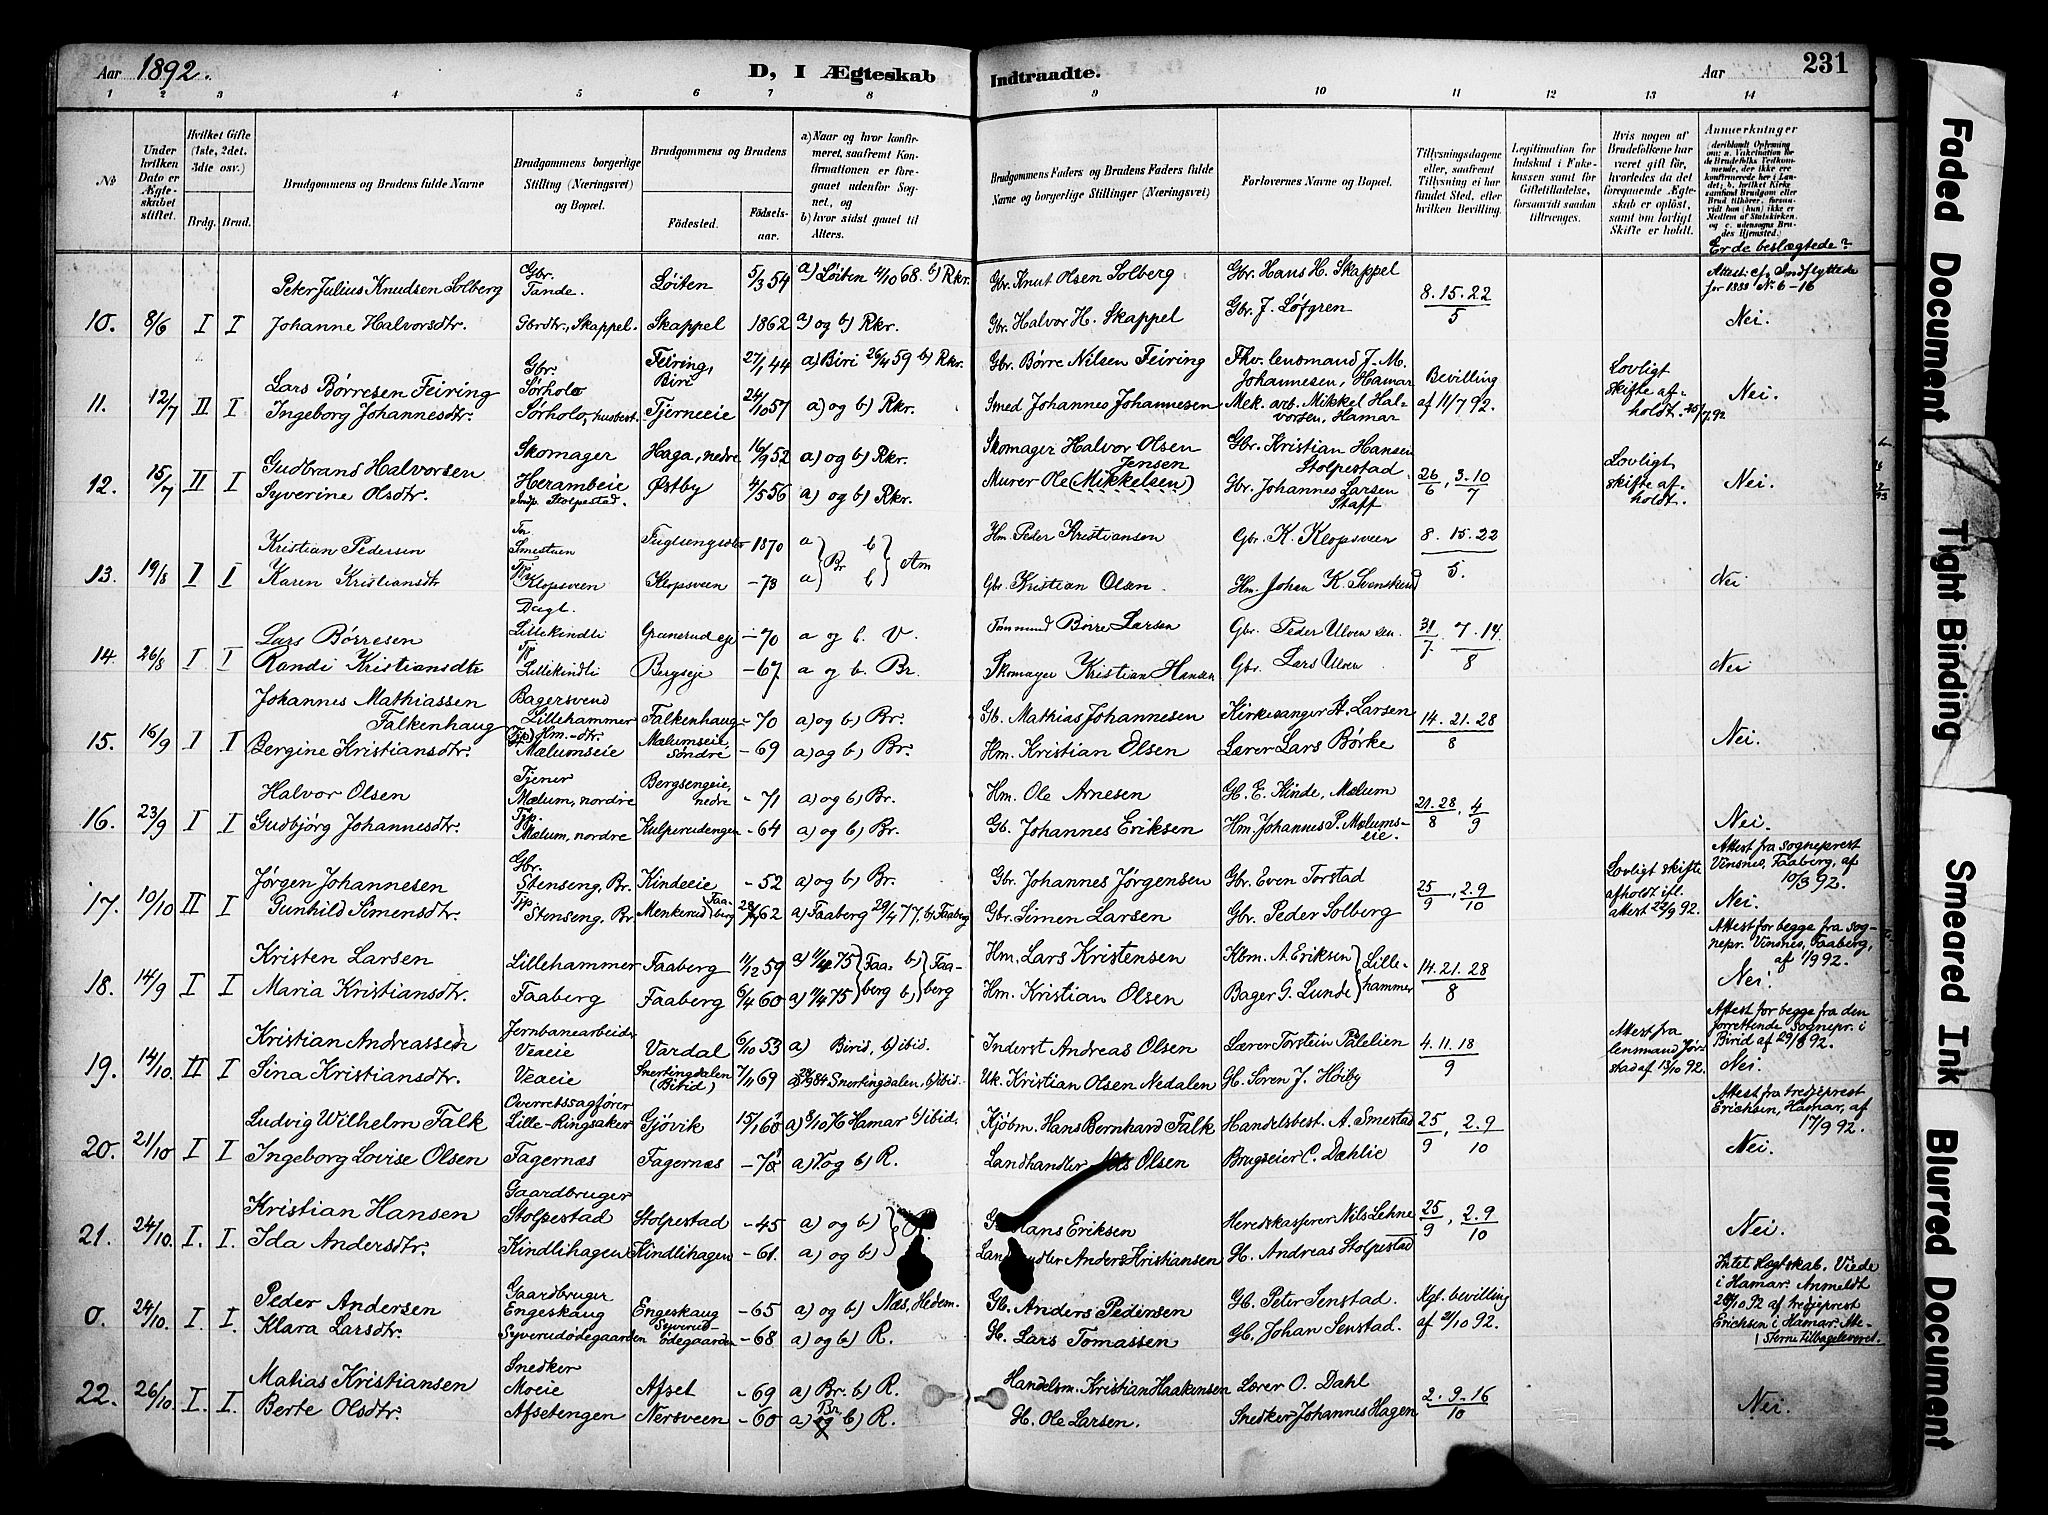 Aar 1892.
D, I Ægteskab Indtraadte.
Aar 231
1 2 3 4 5 6 7 8 9 10 11 12 13 14
№
Under hvilken Dato er Ægteskabet stiftet.
Hvilket Gifte (1ste, 2det, 3die osv.)
Brdg. Brud.
Brudgommens og Brudens fulde Navne
Brudgommens borgerlige Stilling (Næringsvei) og Bopæl.
Brudgommens og Brudens
Födested. Födselsaar.
a) Naar og hvor konfirmeret, saafremt Konfirmationen er foregaaet udenfor Sognet, og
b) hvor sidst gaaet til Alters.
Brudgommens Faders og Brudens Faders fulde Navne og borgerlige Stillinger (Næringsvei)
Forlovernes Navne og Bopæl.
Tillysningsdagene eller, saafremt Tillysning ei har fundet Sted, efter hvilken Bevilling.
Legitimation for Indskud i Enkekassen samt for Giftetilladelse, forsaavidt saadan tiltrænges.
Hvis nogen af Brudefolkene har været gift för, hvorledes da det foregaaende Ægteskab er oplöst, samt om lovligt Skifte er holdt.
Anmærkninger
Er de beslægtede?
Peter Julius Knudsen Solberg Gbr. Tande. Løiten 5/3 54 a) Løiten 4/10 68. b) Rkr. Gbr. Knut Olsen Solberg Gbr. Hans H. Skappel 8. 15. 22 / 5
10. 8/6 I I Johanne Halvorsdtr. Gbrdtr., Skappel. Skappel 1862 a) og b) Rkr. Gbr. Halvor H. Skappel Gbr. J. Løfgren Nei.
11. 12/7 II I Lars Børresen Feiring Gbr. Sørholo Feiring, Biri 27/1 44 a) Biri 26/4 59 b) Rkr. Gbr. Børre Nilsen Feiring Fhv. lensmand J. M. Johannesen, Hamar Bevilling af 11/7 92. Lovligt skifte afholdt. Nei.
Ingeborg Johannesdtr. Sørholo, husbest. Tjerneeie 24/10 57 a) og b) Rkr. Smed Johannes Johannesen Mek. arb. Mikkel Halvorsen, Hamar
12. 15/7 II I Gudbrand Halvorsen Skomager Herambeie Haga, nedre 16/9 52 a) og b) Rkr. Skomager Halvor Olsen Gbr. Kristian Hansen Stolpestad 26/6, 3. 10/7 Lovligt skifte afholdt. Nei.
Syverine Olsdtr. Stolpestad. Østby 4/5 56 a) og b) Rkr. Murer Ole (Mikkelsen) Jensen Gbr. Johannes Larsen Staff
Kristian Pedersen Smestuen 1870 a b Br Am Hm. Peder Kristiansen Gbr. K. Klopsveen 8. 15. 22 / 5.
13. 19/8 I I Karen Kristiansdtr Klopsveen Klopsveen - 73 a b Gbr. Kristian Olsen. Hm. Johan K. Svenskerud Nei
Lars Børresen Dagl. Lillekindli Granerudeje - 70 a og b. V. Tømmerm. Børre Larsen Gbr. Peder Ulven sen. 31/7. 7. 14. / 8
14. 26/8 I I Randi Kristiansdtr Lillekindli Bergseje - 67 a og b. Br. Skomager Kristian Hansen Gbr. Lars Ulven Nei
Johannes Mathiassen Falkenhaug Bagersvend Lillehammer Falkenhaug - 70 a) og b) Br. Gb. Mathias Johannesen Kirkesanger H. Larsen 14. 21. 28 / 8
15. 16/9 I I Bergine Kristiansdtr. Hm.-dtr. Mælumseie Mælumseie, søndre - 69 a) og b) Br. Hm. Kristian Olsen Lærer Lars Børke Nei.
Halvor Olsen Tjener Mælum, nordre Bergsengeie, nedre - 71 a) og b) Br. Hm. Ole Arnesen Gb. E. Kinde, Mælum 21. 28 / 8, 4/9
16. 23/9 I I Gudbjørg Johannesdtr. Tp. Mælum, nordre Kulperudengen - 64 a) og b) Br. Gb. Johannes Eriksen Hm. Johannes P. Mælumseie. Nei.
Jørgen Johannesen Gbr. Stenseng, Br. Kindeeie - 52 a) og b) Br. Gbr. Johannes Jørgensen Gbr. Even Torstad 25/9, 2. 9/10 Lovligt skifte afholdt ifl. attest 22/9 92. Attest fra sogneprest Vinsnes, Faaberg, af 10/3 92.
17. 10/10 II I Gunhild Simensdtr. Tp. Stenseng, Br. Menkerud Faaberg 62 a) Faaberg 29/4 77. b) Faaberg Gbr. Simen Larsen Gbr. Peder Solberg Nei.
Kristen Larsen Lillehammer Faaberg 11/12 59 a) 11/4 75 Faaberg b) Faaberg Hm. Lars Kristensen Kbm. A. Eriksen Lillehammer 14. 21. 28 / 8 Attest for begge fra sognepr. Vinsnes, Faaberg, af 1/9 92.
18. 14/9 I I Maria Kristiansdtr. Faaberg Faaberg 6/4 60 a) 11/4 75 b) Hm. Kristian Olsen Bager G. Lunde Nei.
Kristian Andreassen Jernbanearbeider Veaeie Vardal 6/10 53 a) Birid, b) ibid. Inderst Andreas Olsen Lærer Torstein Pålelien 4. 11. 18 / 9 Attest fra lensmand af 13/10 92. Attest for begge fra den forrettende sognepr. i Birid af 29/8 92.
19. 14/10. II I Sina Kristiansdtr. Veaeie Snertingdalen (Birid) 7/4 69 Snertingdalen, b) ibid. Uk. Kristian Olsen Nedalen Gb. Søren J. Høiby Nei.
Ludvig Wilhelm Falk Overretssagfører Lille-Ringsaker Gjøvik 15/1 60 a) Hamar b) ibid. Kjøbm. Hans Bernhard Falk Handelsbest. A. Smestad 25/9, 2. 9/10 Attest fra tredieprest Erichsen, Hamar, af 17/9 92.
20. 21/10 I I Ingeborg Lovise Olsen Fagernæs Fagernæs a) og b) R. Landhandler Olsen Brugseier C. Dæhlie Nei.
Kristian Hansen Gaardbruger Stolpestad Stolpestad - 45 a) og b) Hans Eriksen Herredskasserer Nils Lehne 25/9, 2. 9/10
21. 24/10. I. I. Ida Andersdtr. Kindlihagen Kindlihagen - 61. a) og b) Landhandler Anders Kristiansen Gb. Andreas Stolpestad Nei.
0. 24/10. I. I. Peder Andersen Gaardbruger Engeskaug Engeskaug - 65 a) og b) Næs, Hedem. Gb. Anders Pedersen Gb. Peter Senstad. Kgl. bevilling af 21/10 92. Intet slægtskab. Viede i Hamar. Anmeldt 28/10 92 af tredieprest Erichsen i Hamar. Attesterne tilbageleveret.
Klara Larsdtr. Syverudødegaarden Syverudødegaarden - 68 a) og b) R. Gb. Lars Tomassen Gb. Johan Senstad.
Matias Kristiansen Snedker Moeie Afset - 69 a) Br. b) R. Handelsm. Kristian Haakensen Lærer O. Dahl 2. 9. 16 / 10
22. 26/10. I. I. Berte Olsdtr. Afsetengen Nersveen - 60 a) Br b) R. Gb. Ole Larsen. Snedker Johannes Hagen Nei.
Faded Document
Tight Binding
Smeared Ink
Blurred Document